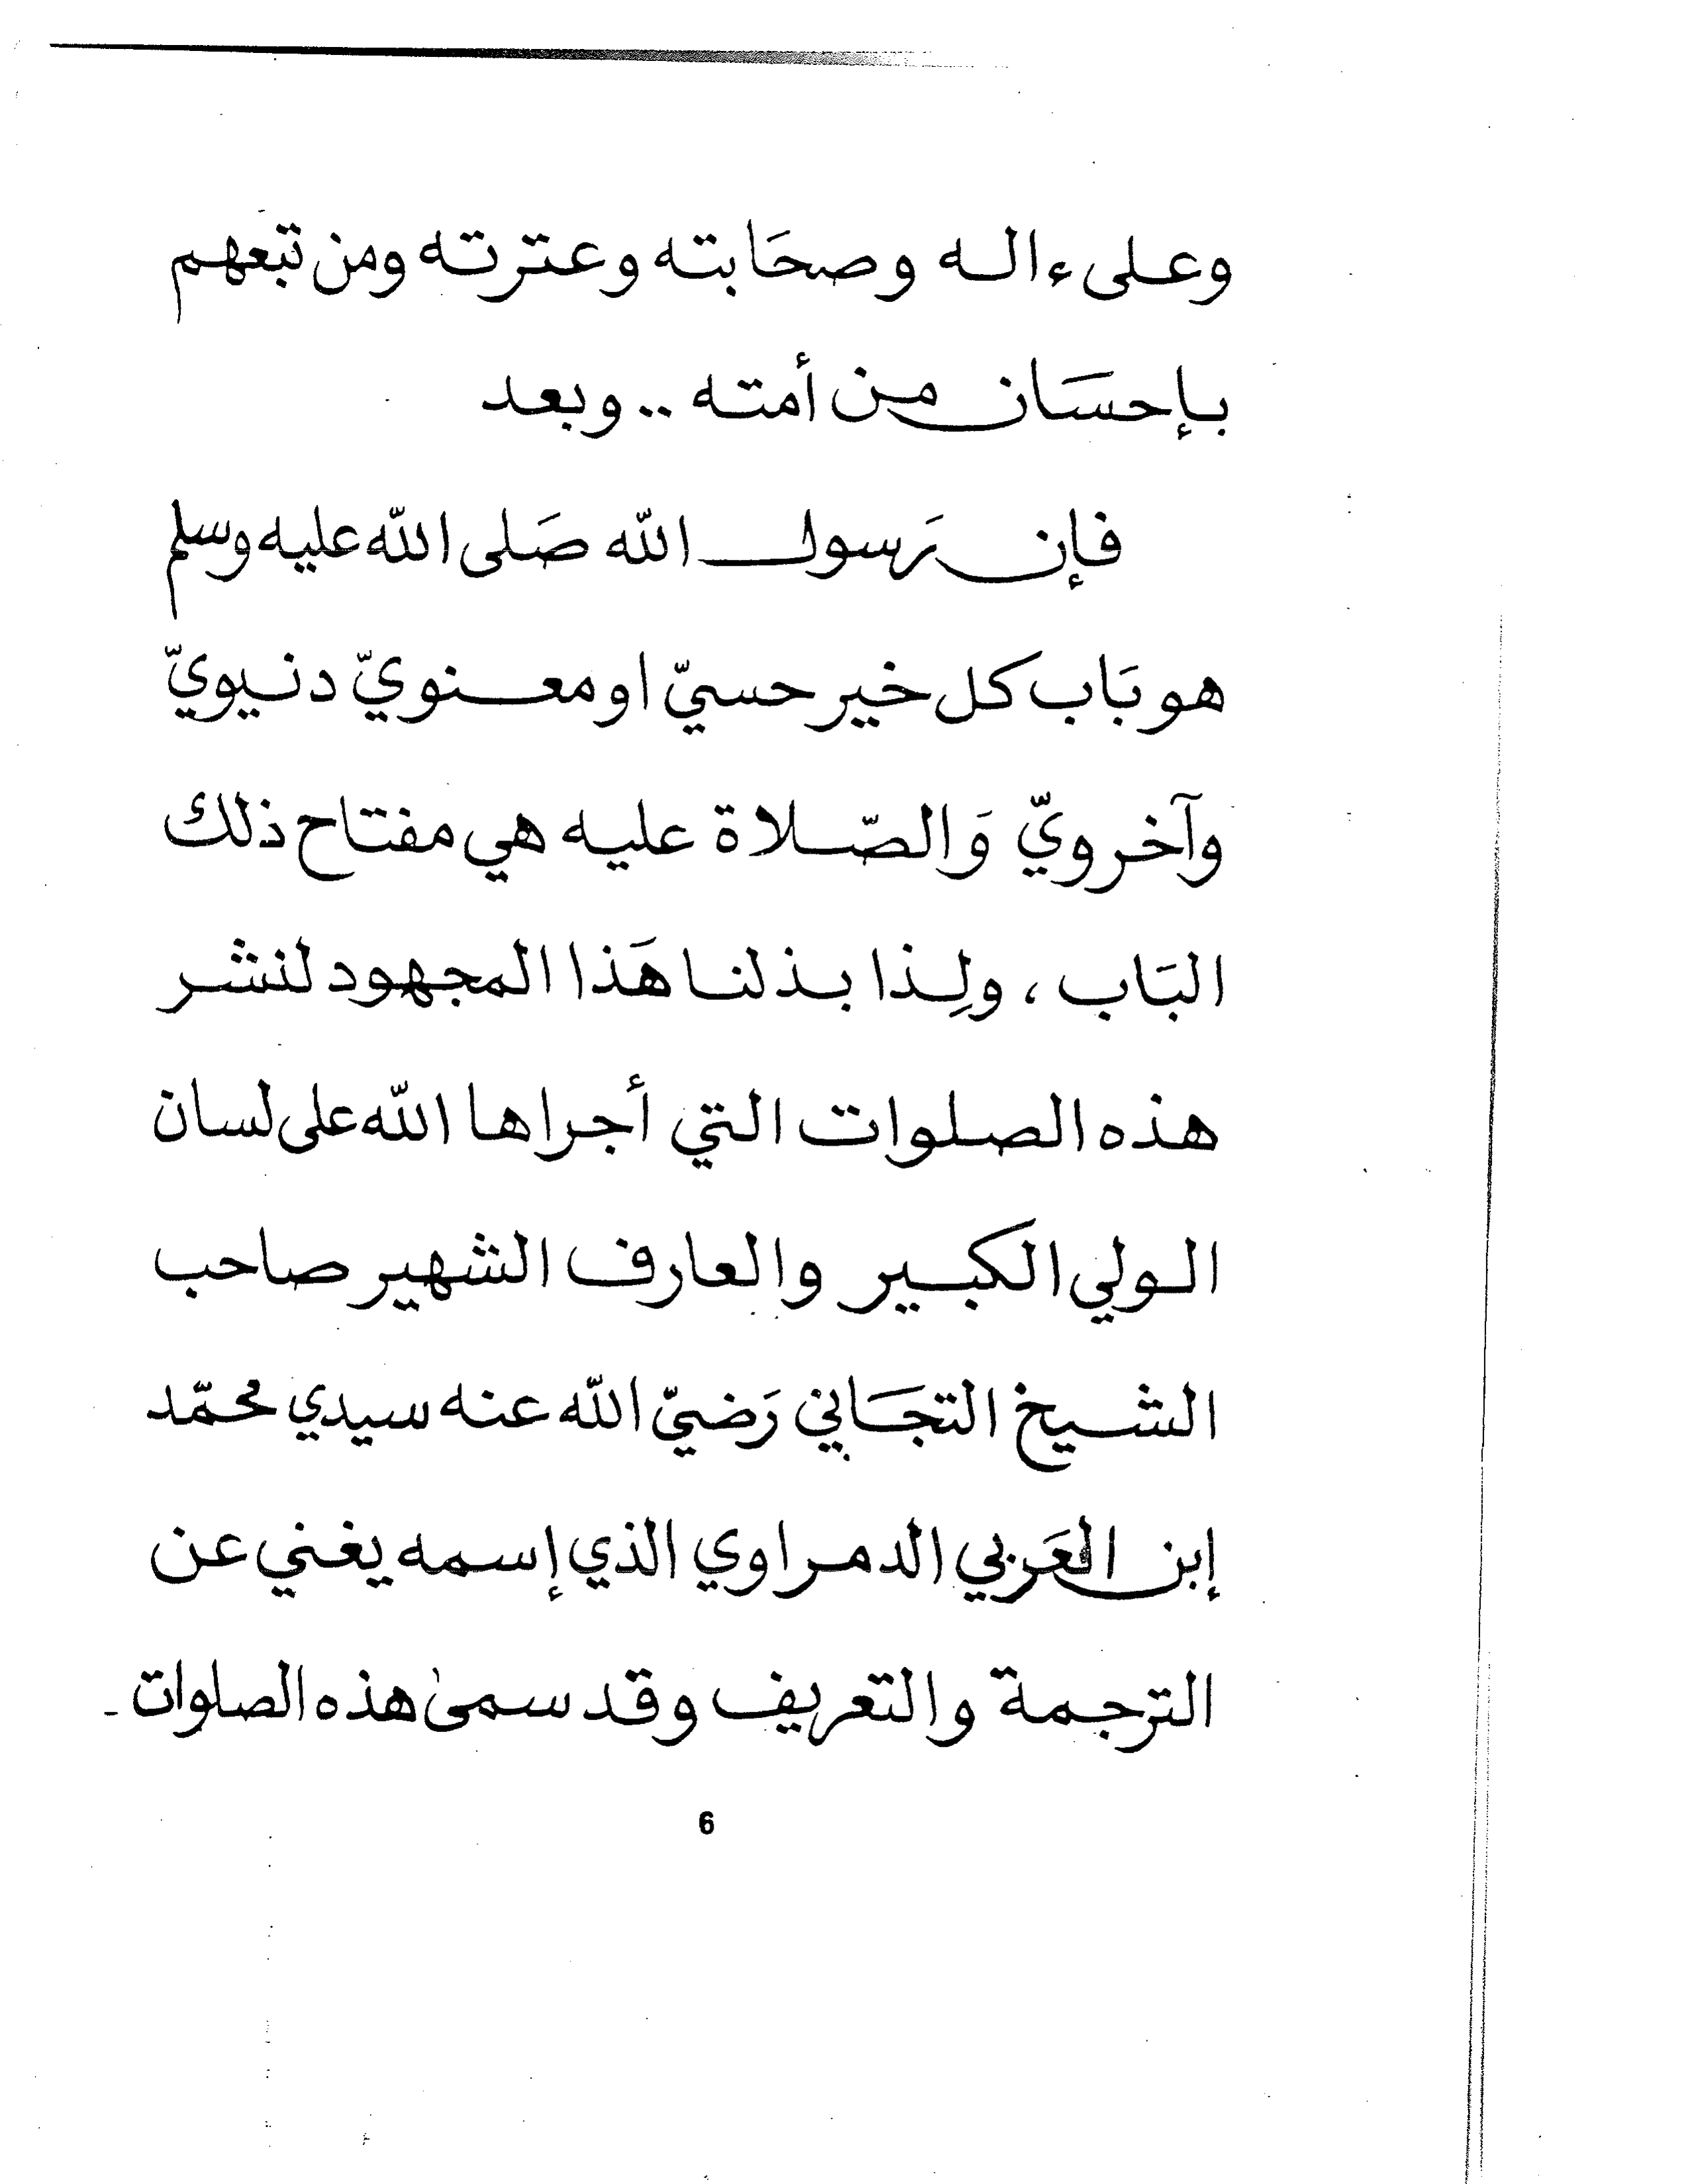 وعلى ءاله وصحَابته وعترته ومن تبعهم
بإحسَان من أمته .. وبعد
فإن رَسول الله صَلى الله عليه وسلم
هو بَاب كل خير حسيّ او معنويّ دنيويّ
وآخرويّ وَالصّلاة عليه هي مفتاح ذلك
البَاب ، ولِذا بذلنا هَذا المجهود لنشر
هذه الصلوات التي أجراها الله على لسان
الولي الكبير والعارف الشهير صاحب
الشيخ التجَاني رَضيّ الله عنه سيدي محمّد
إبن العَربي الدمراوي الذي إسمه يغني عن
الترجمة والتعريف وقد سمى هذه الصلوات -
6